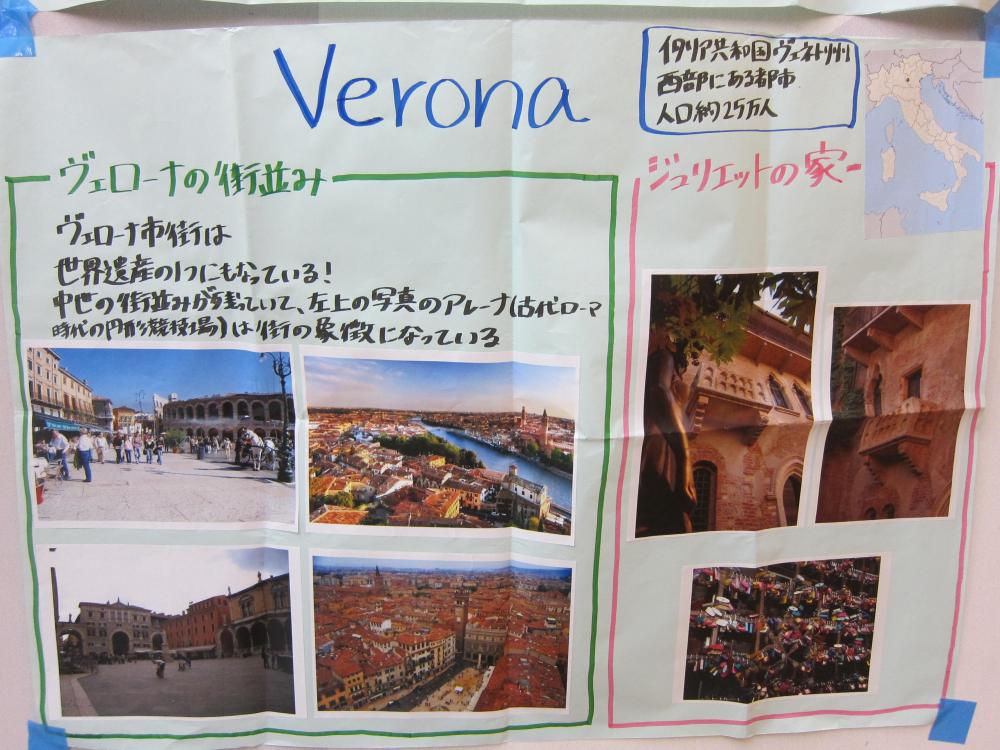 Verona
イタリア共和国ヴェネト州
西部にある都市
人口約25万人
ヴェローナの街並み
ヴェローナ市街は
世界遺産の1つにもなっている!
中世の街並みが残っていて、左上の写真のアレーナ(古代ローマ
時代の円形競技場)は街の象徴になっている
ジュリエットの家